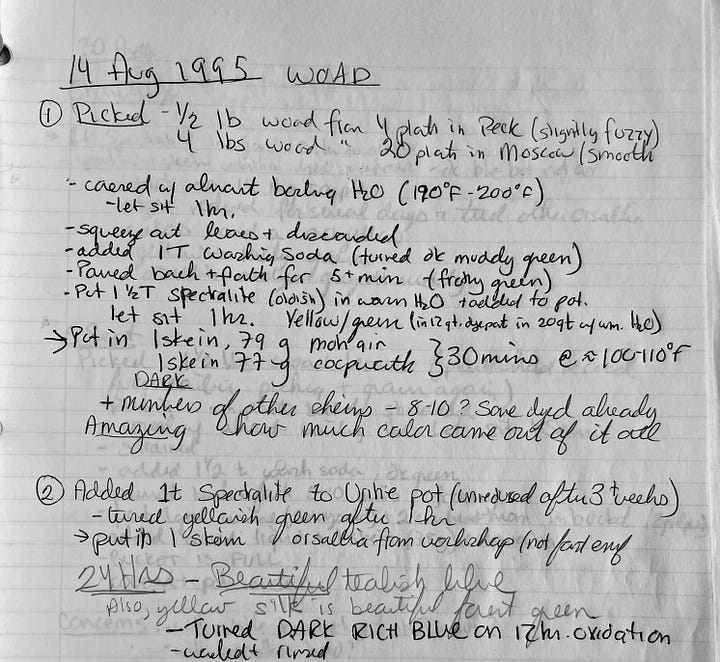 14 Aug 1995 WOAD
① Picked - 1/2 lb woad from 4 plants in Peck (slightly fuzzy)
4 lbs woad " 20 plants in Moscow (smooth
- covered w/ almost boiling H2O (190°F-200°F)
- let sit 1hr.
- squeeze out leaves + discarded
- added 1T washing soda (turned dk muddy green)
- Poured back + forth for 5+ min (frothy green)
- Put 1 1/2T spectralite (oldish) in warm H2O + added to pot.
let sit 1hr. Yellow/green (in 12 qt. dyepot in 20qt w/ wm. H2O)
→ Put in 1 skein, 79 g mohair } 30 mins @ ≈ 100-110°F
1 skein 77 g
DARK
+ numbers of other skeins - 8-10? Some dyed already
Amazing how much color came out of it all
② Added 1t Spectralite to Urine pot (unreduced after 3 weeks)
- turned yellowish green after 1 hr
→ put in 1 skein orsalha from workshop (not fast enuf
24 HRS - Beautiful tealish blue
Also, yellow silk is beautiful forest green
- Turned DARK RICH BLUE on 12 hr. oxidation
- washed + rinsed